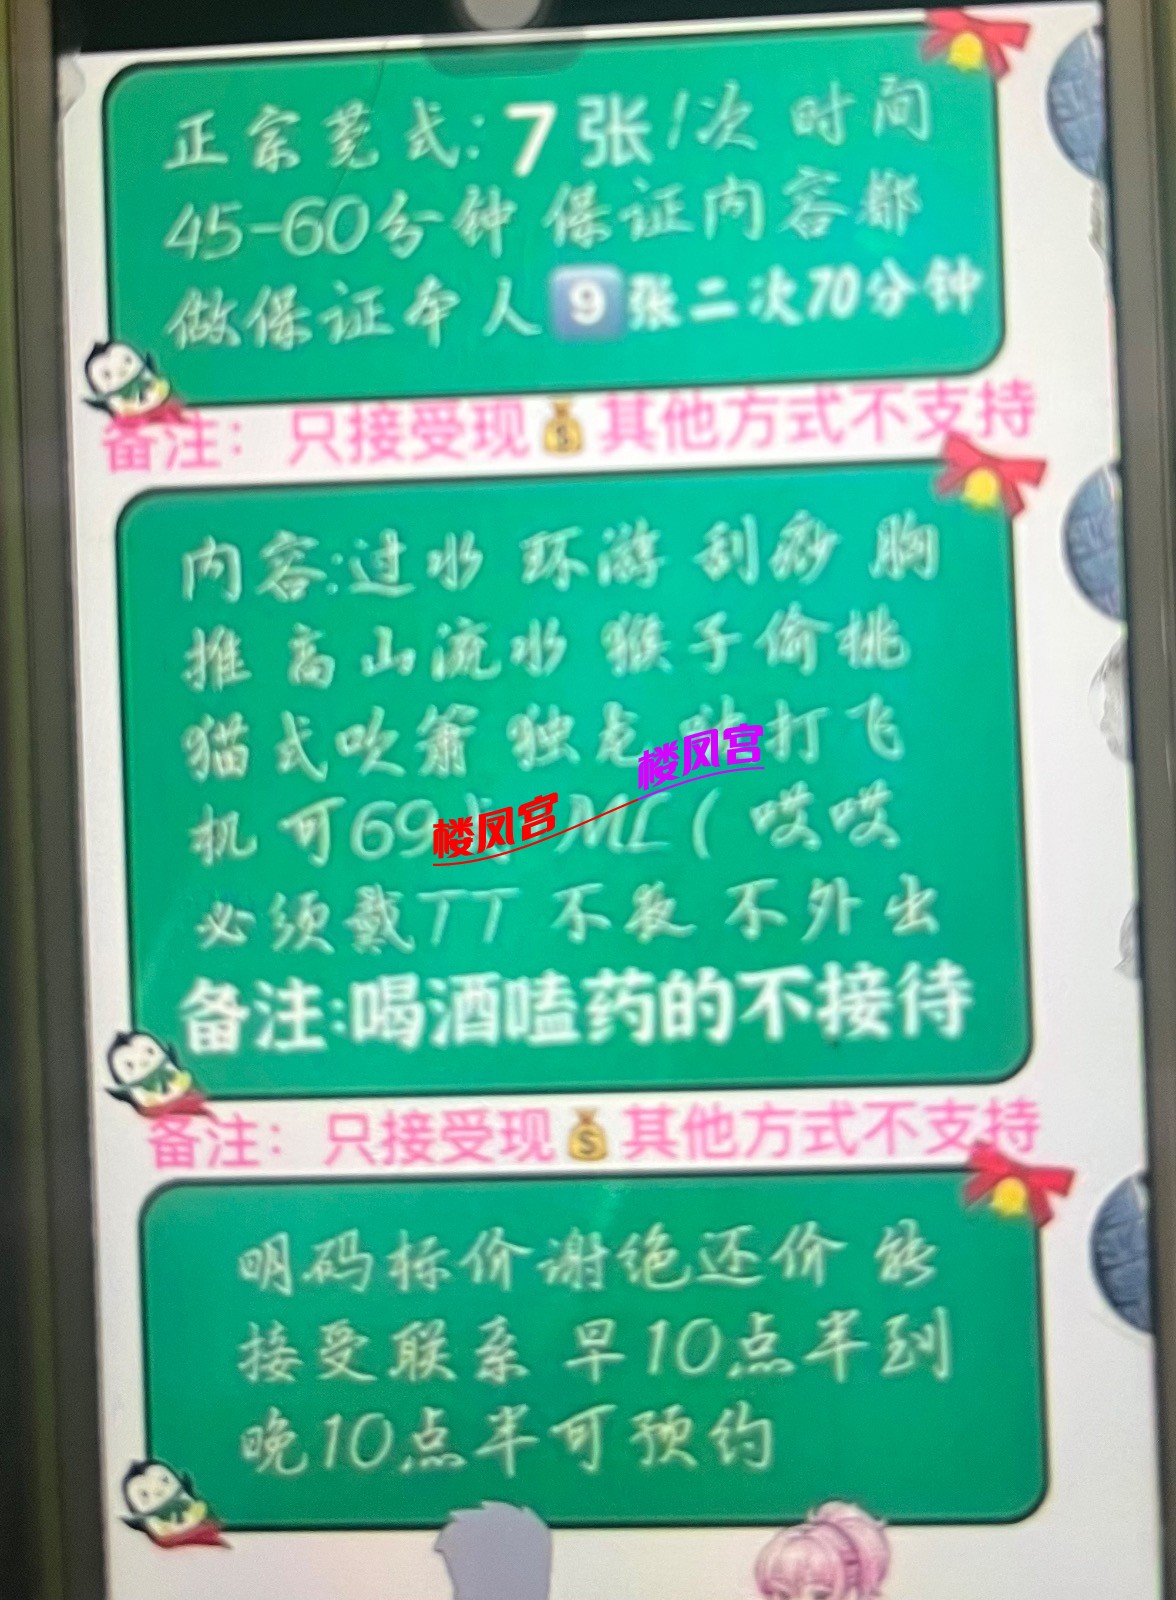 正宗莞式:7张/次 时间
45-60分钟 保证内容都
做保证本人 9 张二次70分钟
备注: 只接受现💰其他方式不支持
内容:过水 环游 刮痧 胸
推 高山流水 猴子偷桃
猫式吹箫 独龙 打飞
机 可69式 ML( 哎哎
楼凤宫
楼凤宫
必须戴TT 不夜 不外出
备注:喝酒嗑药的不接待
备注: 只接受现💰其他方式不支持
明码标价谢绝还价 能
接受联系 早10点半到
晚10点半可预约